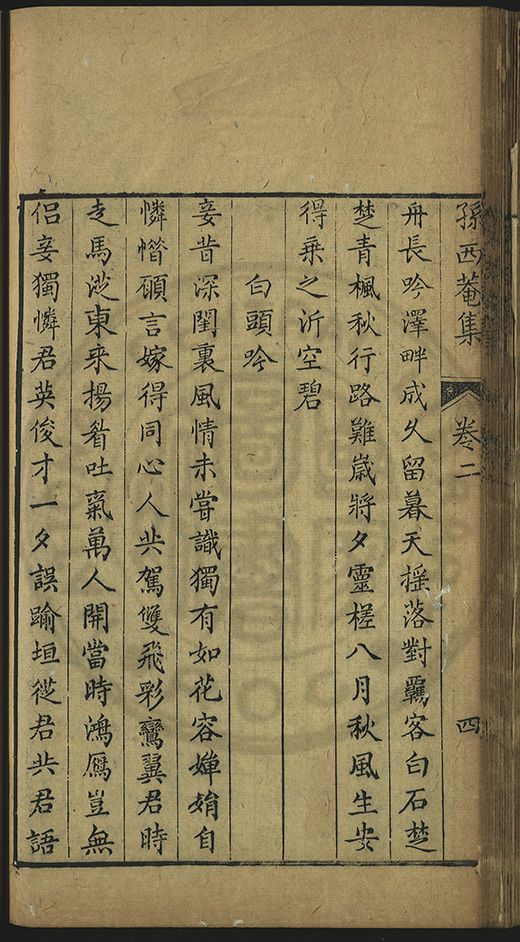 孫西菴集 卷二 四
舟長吟澤畔成久留暮天揺落對羈客白石楚
楚青楓秋行路難歲將夕靈槎八月秋風生安
得乗之泝空碧
白頭吟
妾昔深閨裏風情未嘗識獨有如花容嬋娟自
憐惜願言嫁得同心人共駕雙飛彩鸞翼君時
走馬從東来揚眉吐氣萬人開當時鴻鴈豈無
侣妾獨憐君英俊才一夕誤踰垣從君共君語